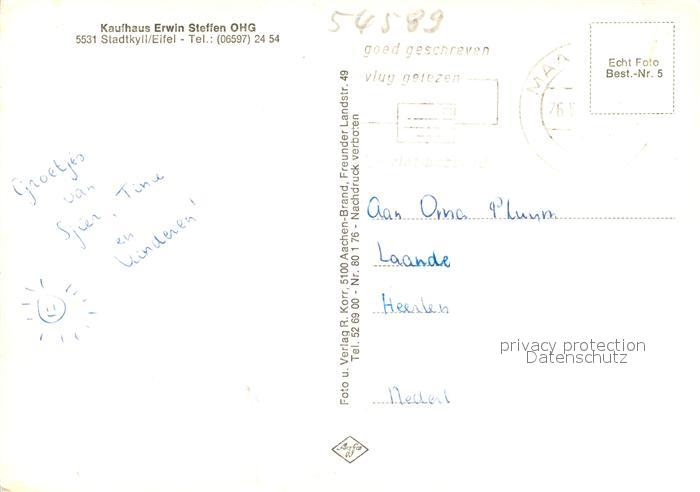 Kaufhaus Erwin Steffen OHG
5531 Stadtkyll/Eifel - Tel.: (06597) 24 54
54589
goed geschreven
vlug gelezen
Echt Foto
Best.-Nr. 5
Groetjes
van
Sjier, Tima
en
kinderen!
Foto u. Verlag R. Korr, 5100 Aachen-Brand, Freunder Landstr. 49
Tel. 52 69 00 - Nr. 80 1 76 - Nachdruck verboten
Aan Oma Pluum
Laande
Heerlen
Nederl
privacy protection
Datenschutz
Agfa